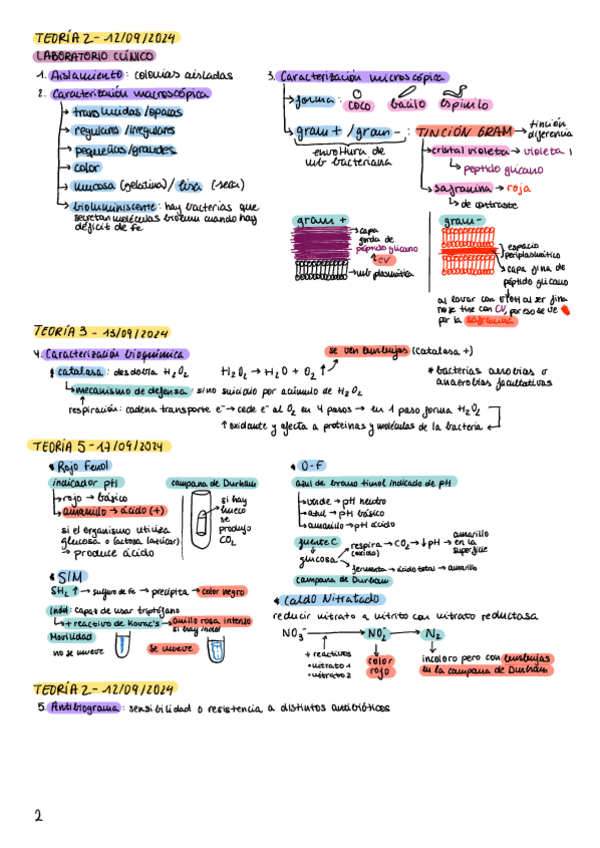 TEORÍA 2 - 12/09/2024
LABORATORIO CLÍNICO
1. Aislamiento: colonias aisladas
2. Caracterización macroscópica
→ translúcidas/opacas
→ regulares/irregulares
→ pequeñas/grandes
→ color
→ mucosa (gelatina)/lisa (seca)
→ bioluminiscente: hay bacterias que
secretan moléculas biolum cuando hay
déficit de Fe
3. Caracterización microscópica
→ forma: coco bacilo espirilo
→ gram+/gram-: TINCIÓN GRAM → tinción
diferencia
envoltura de
mb bacteriana
→ cristal violeta → violeta
↳ peptidoglicano
→ safranina → roja
↳ de contraste
gram +
→ capa
gorda de
peptidoglicano
↑ CV
→ mb plasmática
gram -
espacio
periplasmático
capa fina de
peptidoglicano
al lavar con EtOH al ser fina
no se tiñe con CV, por eso se ve
por la safranina
TEORÍA 3 - 13/09/2024
4. Caracterización bioquímica
se ven burbujas (catalasa +)
catalasa: desdobla H2O2
H2O2 → H2O + O2 ↑
* bacterias aerobias o
anaerobias facultativas
↳ mecanismo de defensa: si no suicidio por acúmulo de H2O2
respiración: cadena transporte e- → cede e- al O2 en 4 pasos → en 1 paso forma H2O2
↑ oxidante y afecta a proteínas y moléculas de la bacteria ←
TEORÍA 5 - 17/09/2024
* Rojo Fenol
indicador pH
→ rojo → básico
→ amarillo → ácido (+)
si el organismo utiliza
glucosa o lactosa (azúcar)
→ produce ácido
campana de Durham
si hay
hueco
se
produjo
CO2
* O-F
azul de bromo timol indicado de pH
→ verde → pH neutro
→ azul → pH básico
→ amarillo → pH ácido
fuente C
glucosa
respira → CO2 → ↓pH → amarillo
en la
superficie
(oxida)
fermenta → ácido total → amarillo
campana de Durham
* SIM
SH2 ↑ → sulfuro de Fe → precipita → color negro
Indol: capaz de usar triptófano
↳ + reactivo de Kovac's → anillo rosa intenso
si hay indol
Movilidad
no se mueve
se mueve
* Caldo Nitratado
reducir nitrato a nitrito con nitrato reductasa
NO3- → NO2- → N2
+ reactivos
• nitrato 1
• nitrato 2
color
rojo
incoloro pero con burbujas
en la campana de Durham
TEORÍA 2 - 12/09/2024
5. Antibiograma: sensibilidad o resistencia a distintos antibióticos
2